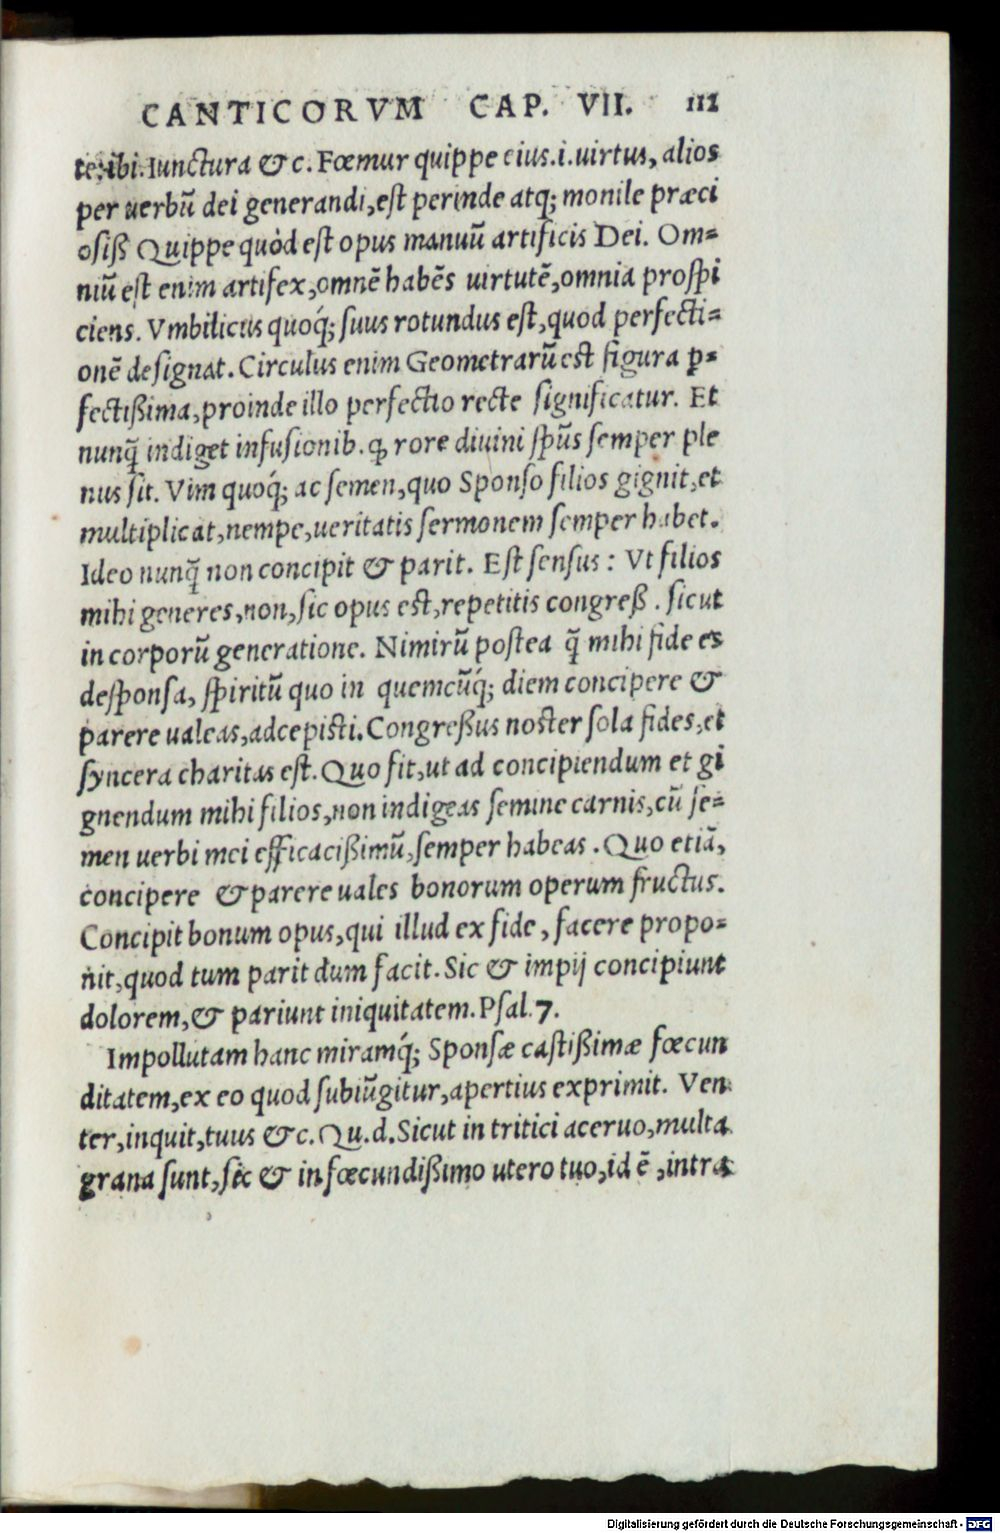 CANTICORVM CAP. VII. 112
te, ibi. Iunctura &c. Fœmur quippe eius.i.uirtus, alios
per uerbū dei generandi, est perinde atq; monile præci
osiß Quippe quòd est opus manuū artificis Dei. Om=
niū est enim artifex, omnē habēs uirtutē, omnia prospi
ciens. Vmbilicus quoq́; suus rotundus est, quod perfecti=
onē designat. Circulus enim Geometrarū est figura ꝑ=
fectißima, proinde illo perfectio recte significatur. Et
nunq̄ indiget infusionib. ꝙ rore diuini spūs semper ple
nus sit. Vim quoq́; ac semen, quo Sponso filios gignit, et
multiplicat, nempe, ueritatis sermonem semper habet.
Ideo nunq̄ non concipit & parit. Est sensus: Vt filios
mihi generes, non, sic opus est, repetitis congreß. sicut
in corporū generatione. Nimirū postea q̄ mihi fide es
desponsa, spiritū quo in quemcūq́; diem concipere &
parere ualeas, adcepisti. Congreßus noster sola fides, et
syncera charitas est. Quo fit, ut ad concipiendum et gi
gnendum mihi filios, non indigeas semine carnis, cū se=
men uerbi mei efficacißimū, semper habeas. Quo etiā,
concipere & parere uales bonorum operum fructus.
Concipit bonum opus, qui illud ex fide, facere propo=
nit, quod tum parit dum facit. Sic & impij concipiunt
dolorem, & pariunt iniquitatem. Psal. 7.
Impollutam hanc miramq́; Sponsæ castißimæ fœcun
ditatem, ex eo quod subiūgitur, apertius exprimit. Ven
ter, inquit, tuus &c. Qu.d. Sicut in tritici aceruo, multa
grana sunt, sic & in fœcundißimo utero tuo, id ē, intra
Digitalisierung gefördert durch die Deutsche Forschungsgemeinschaft - DFG